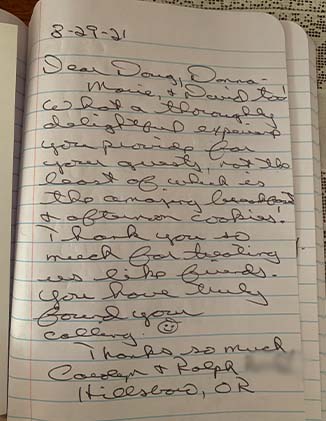 8-29-21
Dear Doug, Donna-
Marie, & David too!
What a thoroughly
delightful experience
you provide for
your guests, not the
least of which is
the amazing breakfast
& afternoon cookies!
Thank you so
much for treating
us like friends.
You have truly
found your
calling. ☺
Thanks so much
Carolyn & Ralph
Hillsboro, OR